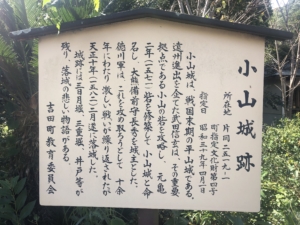 小山城跡
所在地　片岡二五一九ー一
町指定文化財第四号
指定日　昭和三十九年四月一日
小山城は、戦国末期の平山城である。
遠州進出を企てた武田信玄は、その重要
拠点である小山の砦を攻略し、元亀
二年(一五七一)砦を修築して小山城と命
名し、大熊備前守長秀を城主とした。
徳川軍は、これを攻め取ろうとして、十余
年にわたり激しい戦いが繰り返されたが
天正十年(一五八二)二月遂に落城した。
城跡には三日月堀、三重堀、井戸等が
残り、落城の悲しい物語がある。
吉田町教育委員会